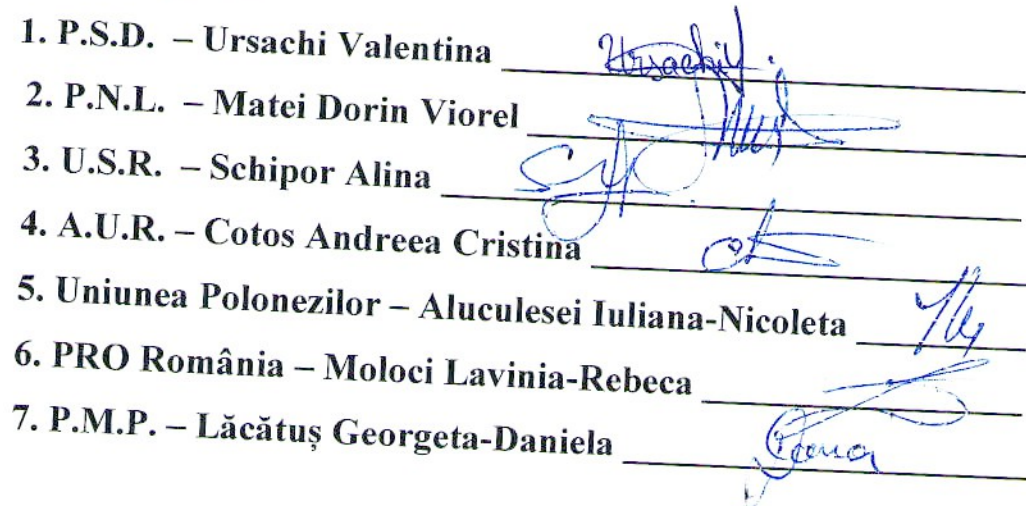 1. P.S.D. – Ursachi Valentina Ursachi V.
2. P.N.L. – Matei Dorin Viorel
3. U.S.R. – Schipor Alina
4. A.U.R. – Cotos Andreea Cristina
5. Uniunea Polonezilor – Aluculesei Iuliana-Nicoleta
6. PRO România – Moloci Lavinia-Rebeca
7. P.M.P. – Lăcătuș Georgeta-Daniela